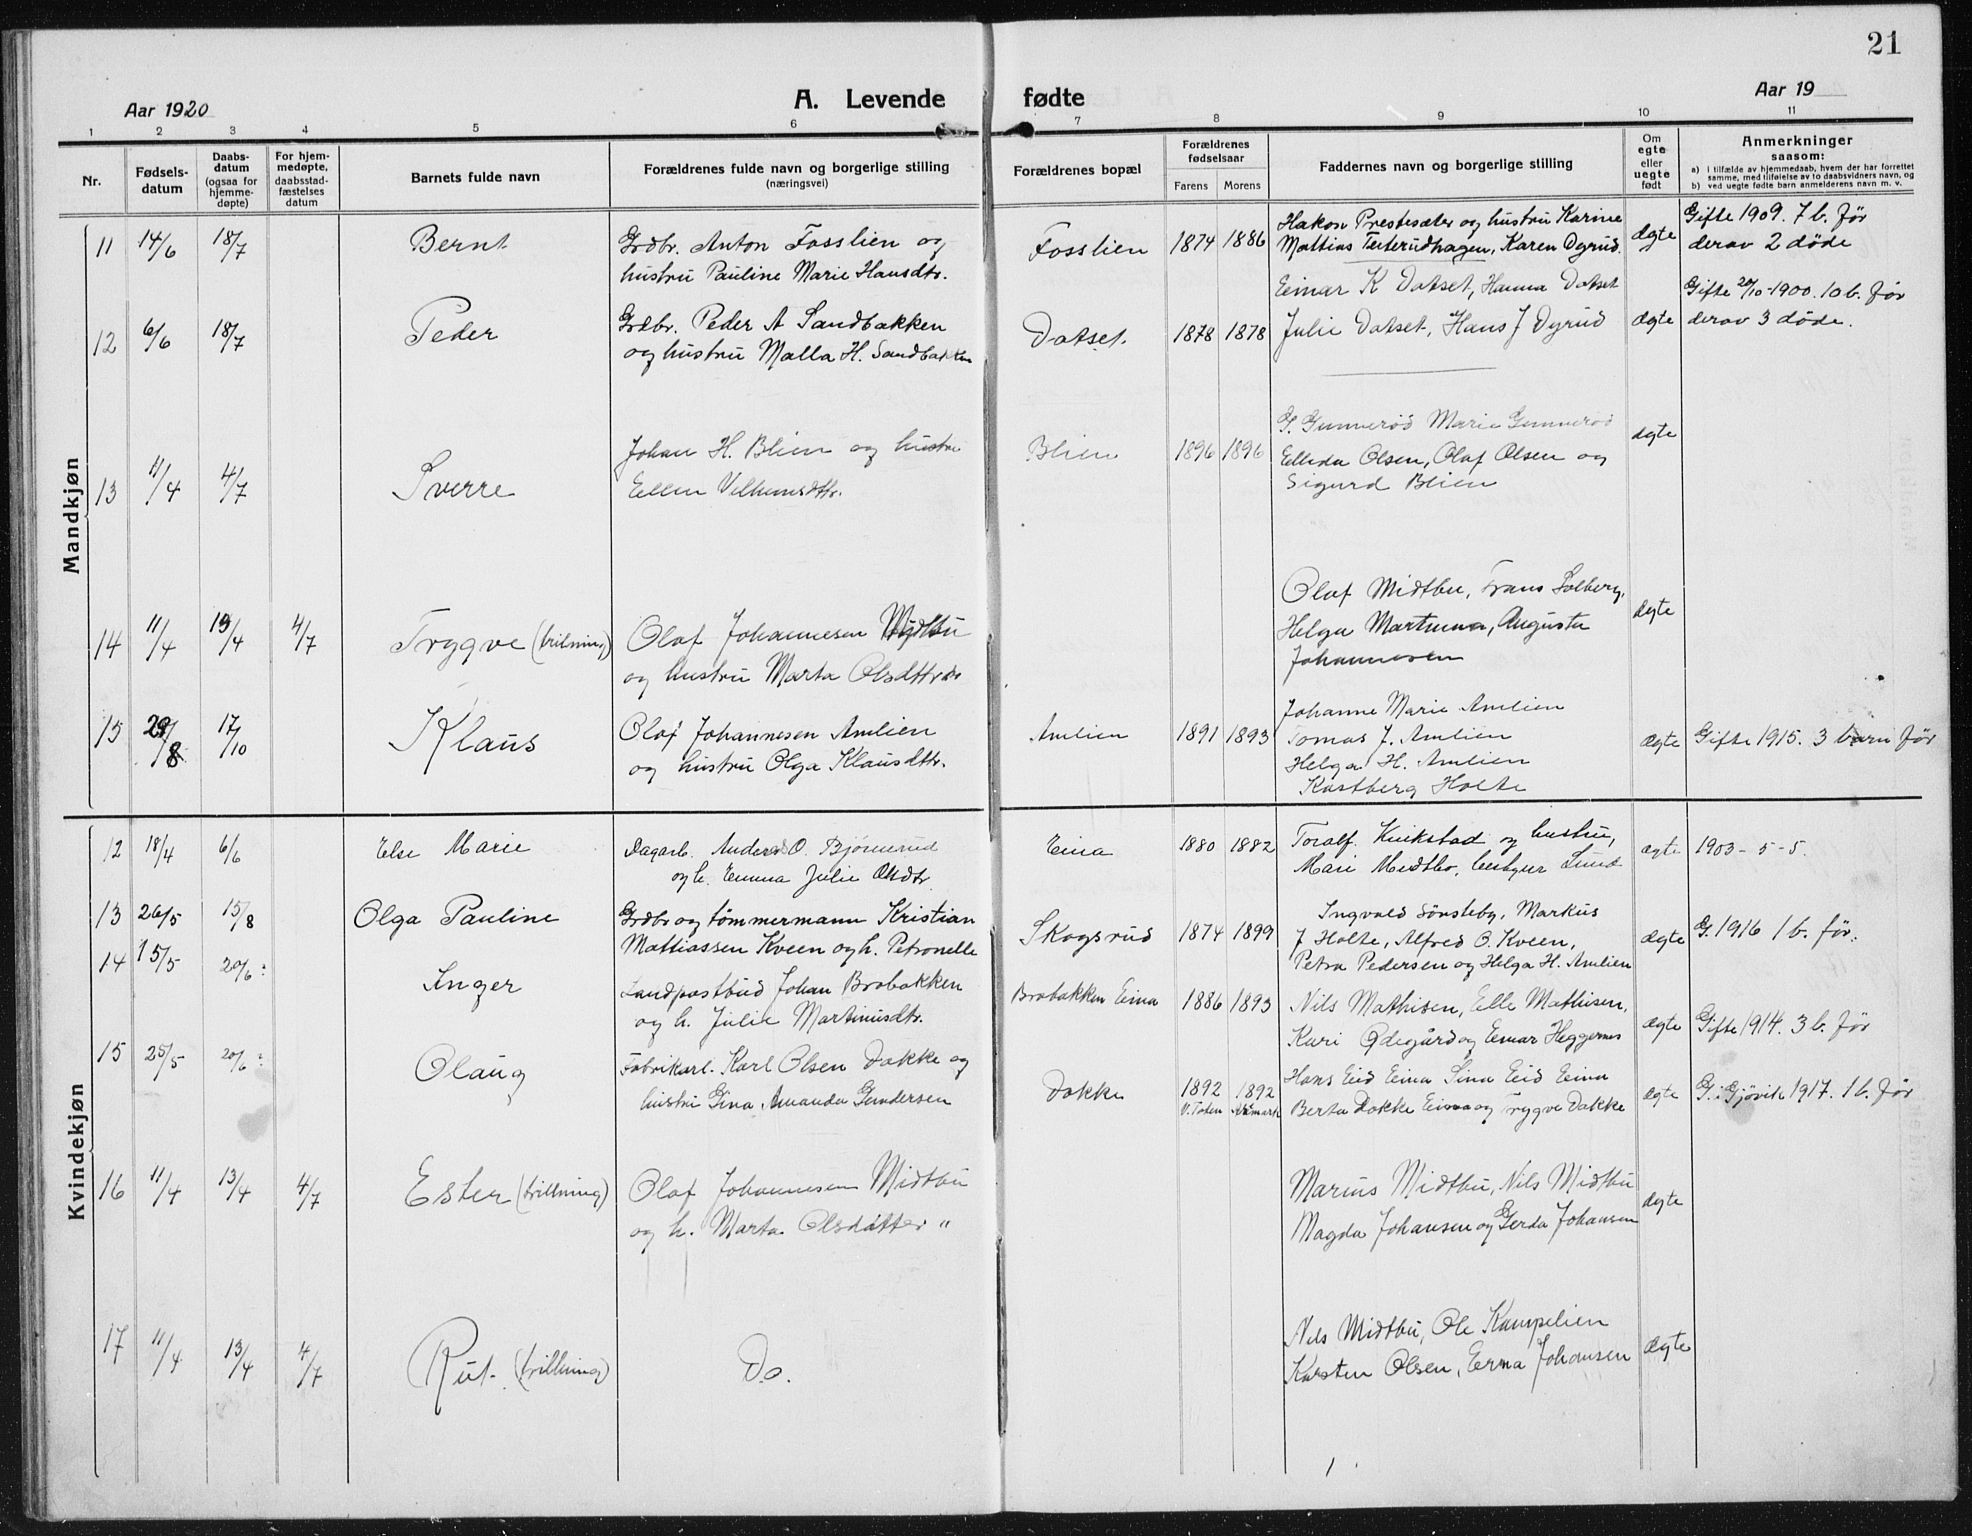 21
Aar 1920
A. Levende fødte
Aar 19
1 2 3 4 5 6 7 8 9 10 11
Nr.
Fødsels-
datum
Daabs-
datum
(ogsaa for
hjemme-
døpte)
For hjem-
medøpte,
daabsstad-
fæstelses
datum
Barnets fulde navn
Forældrenes fulde navn og borgerlige stilling
(næringsvei)
Forældrenes bopæl
Forældrenes
fødselsaar
Farens Morens
Faddernes navn og borgerlige stilling
Om
egte
eller
uegte
født
Anmerkninger
saasom:
a) i tilfælde av hjemmedaab, hvem der har forrettet
samme, med tilføielse av to daabsvidners navn, og
b) ved uegte fødte barn anmelderens navn m. v.
Mandkjøn
11 14/6 18/7 Bernt
Grdbr. Anton Fosslien og
hustru Pauline Marie Hansdtr.
Fosslien 1874 1886
Hakon Prestesæter og hustru Karine
Mattias Teterudhagen, Karen Dyrud.
ægte
Gifte 1909. 7 b. før
derav 2 døde
12 6/6 18/7 Peder
Grdbr. Peder A Sandbakken
og hustru Malla H. Sandbakken
Datset. 1878 1878
Einar K Datset, Hanna Datset
Julie Datset, Hans J Dyrud
ægte
Gifte 20/10-1900. 10 b. før
derav 3 døde.
13 11/4 4/7 Sverre
Johan H. Blien og hustru
Ellen Vilhemsdtr.
Blien 1896 1896
G. Gunnerød Marie Gunnerød
Ellida Olsen, Olaf Olsen og
Sigurd Blien
ægte
14 11/4 13/4 4/7 Trygve (trilning)
Olaf Johannesen Midtbu
og hustru Marta Olsdtr
Olaf Midtbu, Frans Solberg,
Helga Martinna, Augusta
Johannesen
ægte
15 29/8 17/10 Klaus
Olaf Johannesen Amlien
og hustru Olga Klausdtr.
Amlien 1891 1893
Johanne Marie Amlien
Tomas J. Amlien
Helga H. Amlien
Kastberg Holte
ægte
Gifte 1915. 3 barn før
Kvindekjøn
12 18/4 6/6 Else Marie
Dagarb. Anders O. Bjørnerud
og h. Emma Julie Olsdtr.
Eina 1880 1882
Toralf Kvikstad og hustru,
Mari Midtbo, Lund
ægte
1903 - 5 - 5.
13 26/5 15/8 Olga Pauline
Grdbr og tømmermann Kristian
Mattiassen Kveen og h. Petronelle
Skogsrud 1874 1899
Ingvald Sønsteby, Markus
J Holte, Alfred O. Kveen,
Petra Pedersen og Helga H. Amlien
ægte
G. 1916 1 b. før.
14 15/5 20/6 Inger
Landpostbud Johan Brobakken
og h. Julie Martinusdtr.
Brobakken Eina 1886 1893
Nils Mathisen, Elle Mathisen,
Kari Ødegård og Einar Heggernes
ægte
Gifte 1914. 3 b. før
15 25/5 20/6 Olaug
Fabrikarb. Karl Olsen Dokke og
hustru Gina Amanda Gundersen
Dokke 1892 1892
V. Toten
Hans Eid Eina Sina Eid Eina
Berta Dokke Eina og Trygve Dokke
ægte
G. i Gjøvik 1917. 1 b. før
16 11/4 13/4 4/7 Ester (trillning)
Olaf Johannesen Midtbu
og h. Marta Olsdatter "
Marius Midtbu, Nils Midtbu
Magda Johansen og Gerda Johansen
ægte
17 11/4 13/4 4/7 Rut. (trillning)
Do.
Nils Midtbu, Ole Kampelien
Karsten Olsen, Erna Johansen
ægte